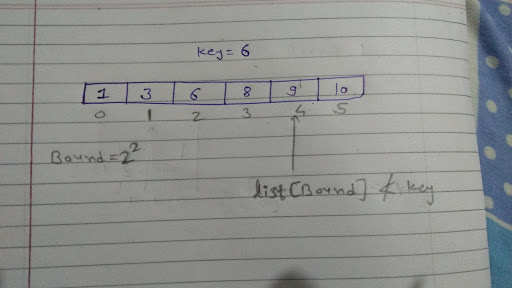 key = 6
1 3 6 8 9 10
0 1 2 3 4 5
Bound = 2²
list[Bound] ≮ key